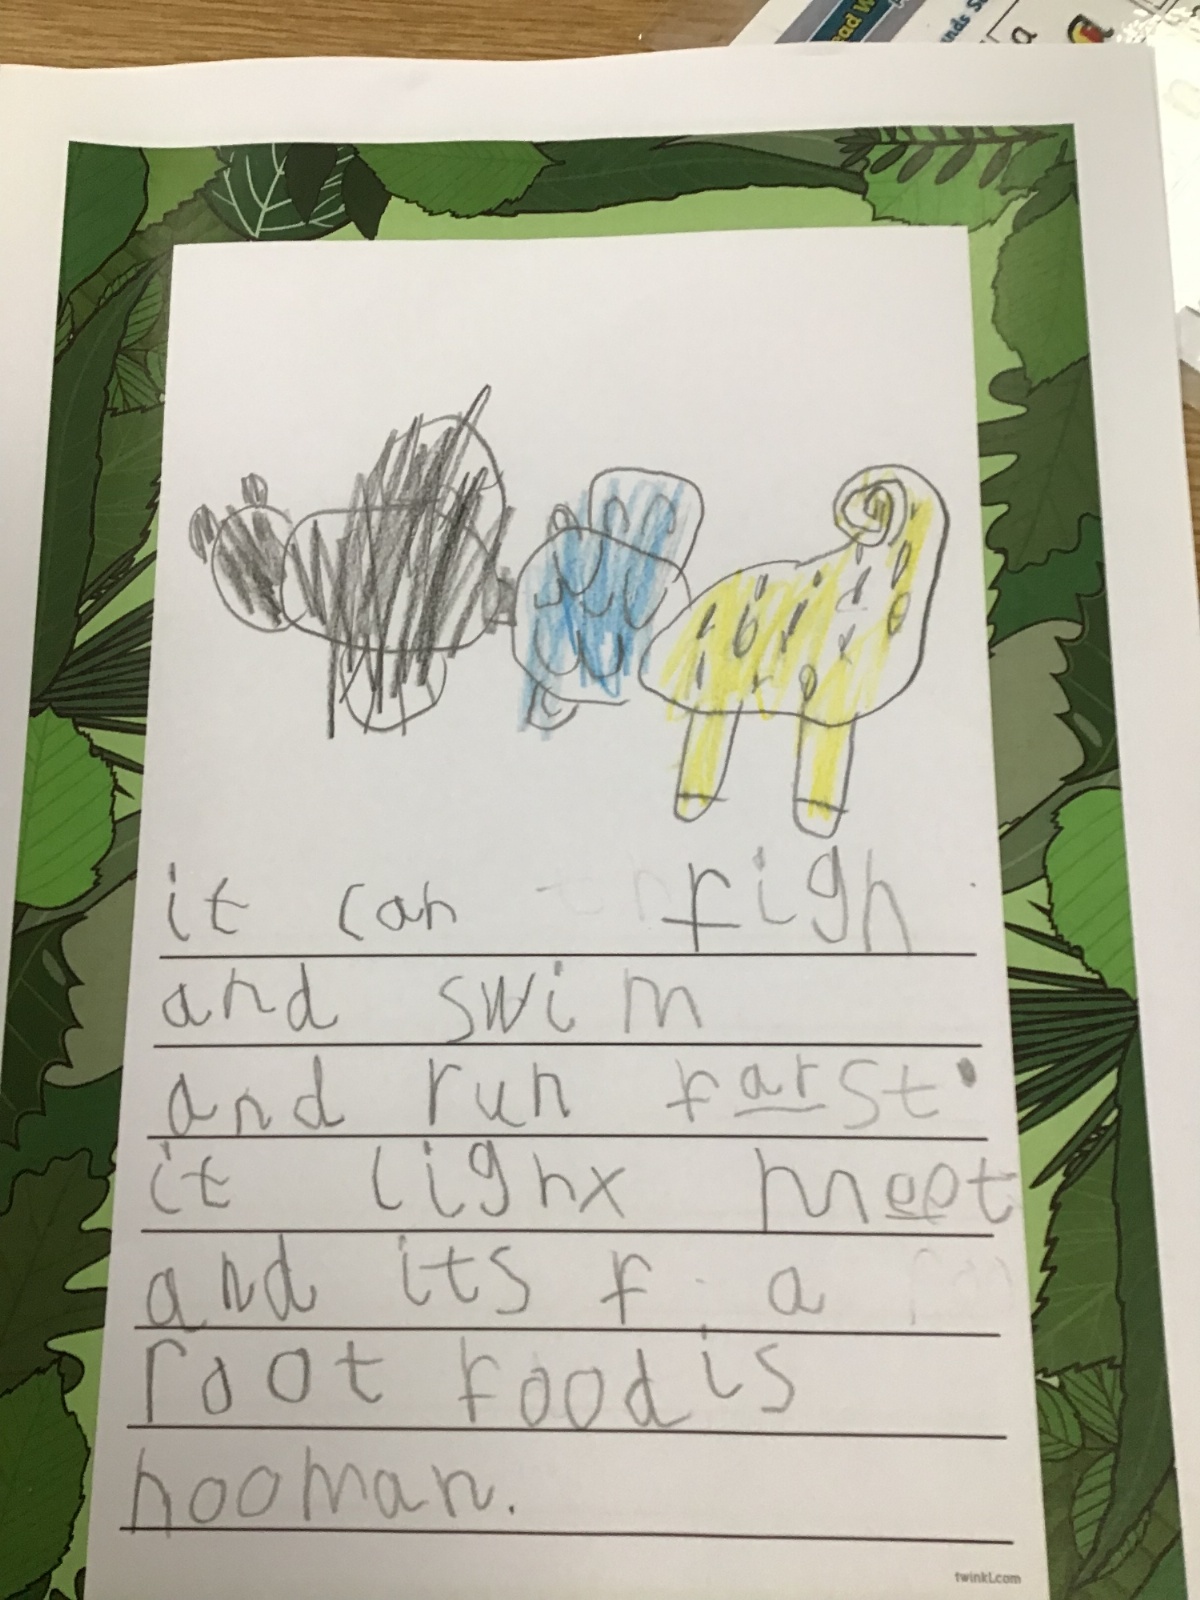 it can figh
and swim
and run farst.
it lighx meet
and its f a
root food is
hooman.
twinkl.com